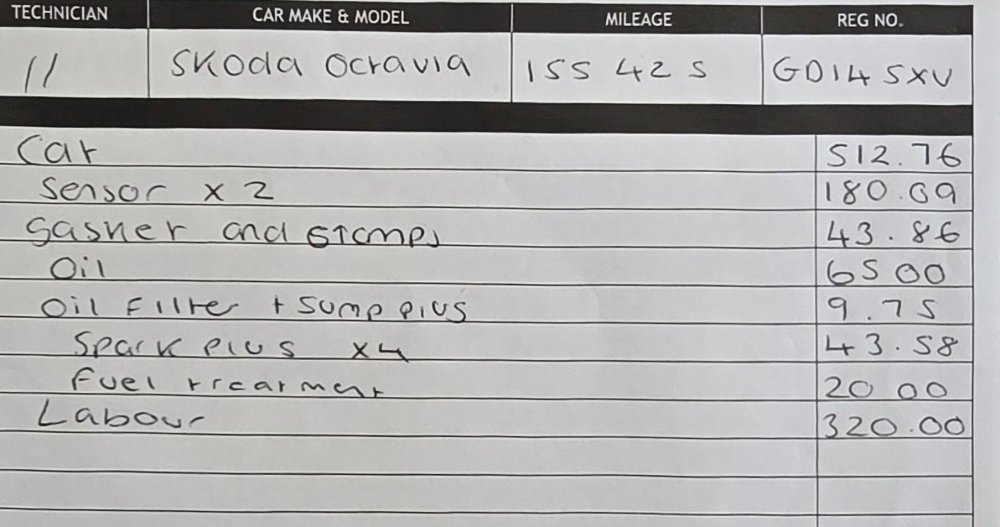 TECHNICIAN CAR MAKE & MODEL MILEAGE REG NO.
11 Skoda Octavia 155 425 GD14 5XV
Cat 512.76
Sensor x 2 180.09
Gasket and stamps 43.86
Oil 65 00
Oil Filter + Sump plug 9.75
Spark plug x4 43.58
Fuel treatment 20 00
Labour 320.00